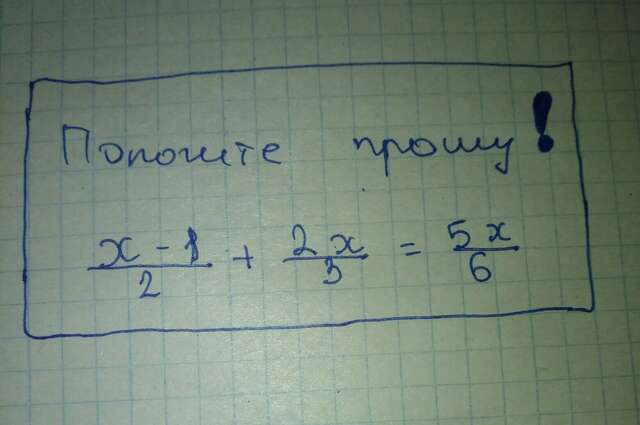 Помогите прошу!
x - 1/2 + 2x/3 = 5x/6